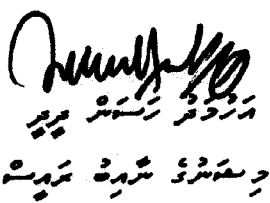 އަޙުމަދު ހަސަން ދީދީ
މިޝަނުގެ ނާއިބު ރައީސް